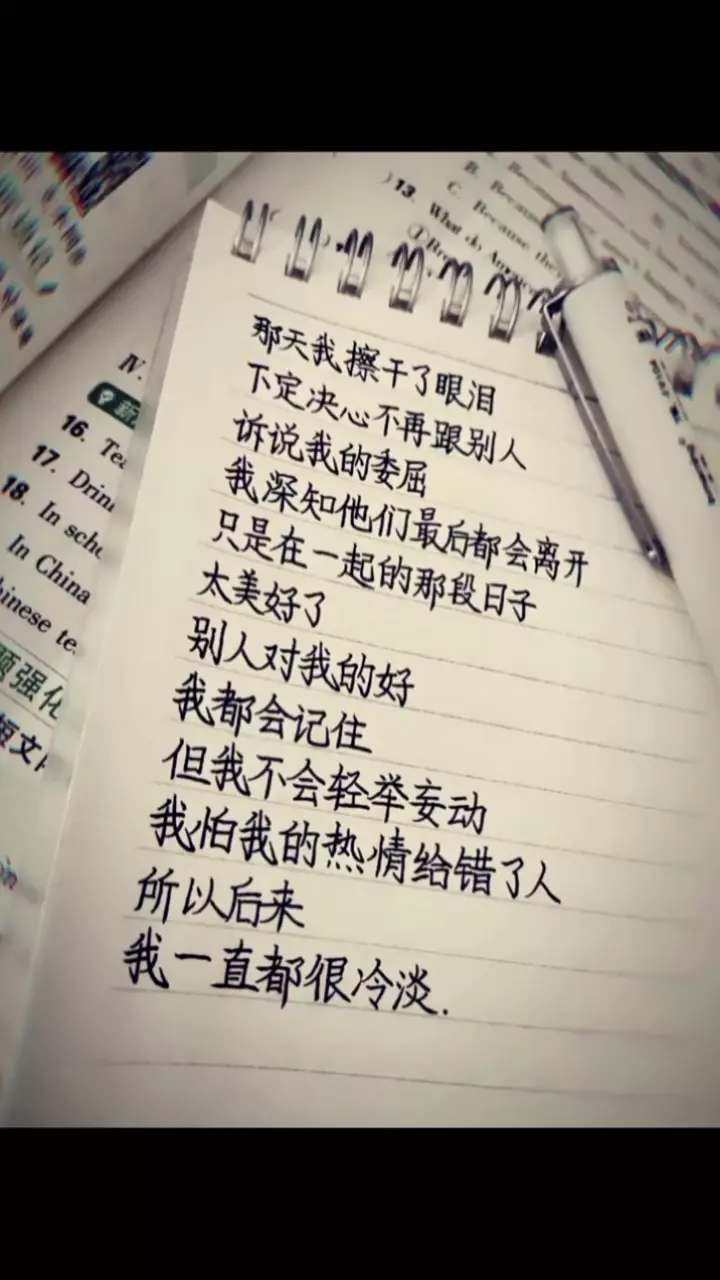 13. What do Am
B. Because
C. Because the
IV.
16. Tea
17. Drin
18. In scho
In China
hinese te
强化
短文
那天我擦干了眼泪
下定决心不再跟别人
诉说我的委屈
我深知他们最后都会离开
只是在一起的那段日子
太美好了
别人对我的好
我都会记住
但我不会轻举妄动
我怕我的热情给错了人
所以后来
我一直都很冷淡.